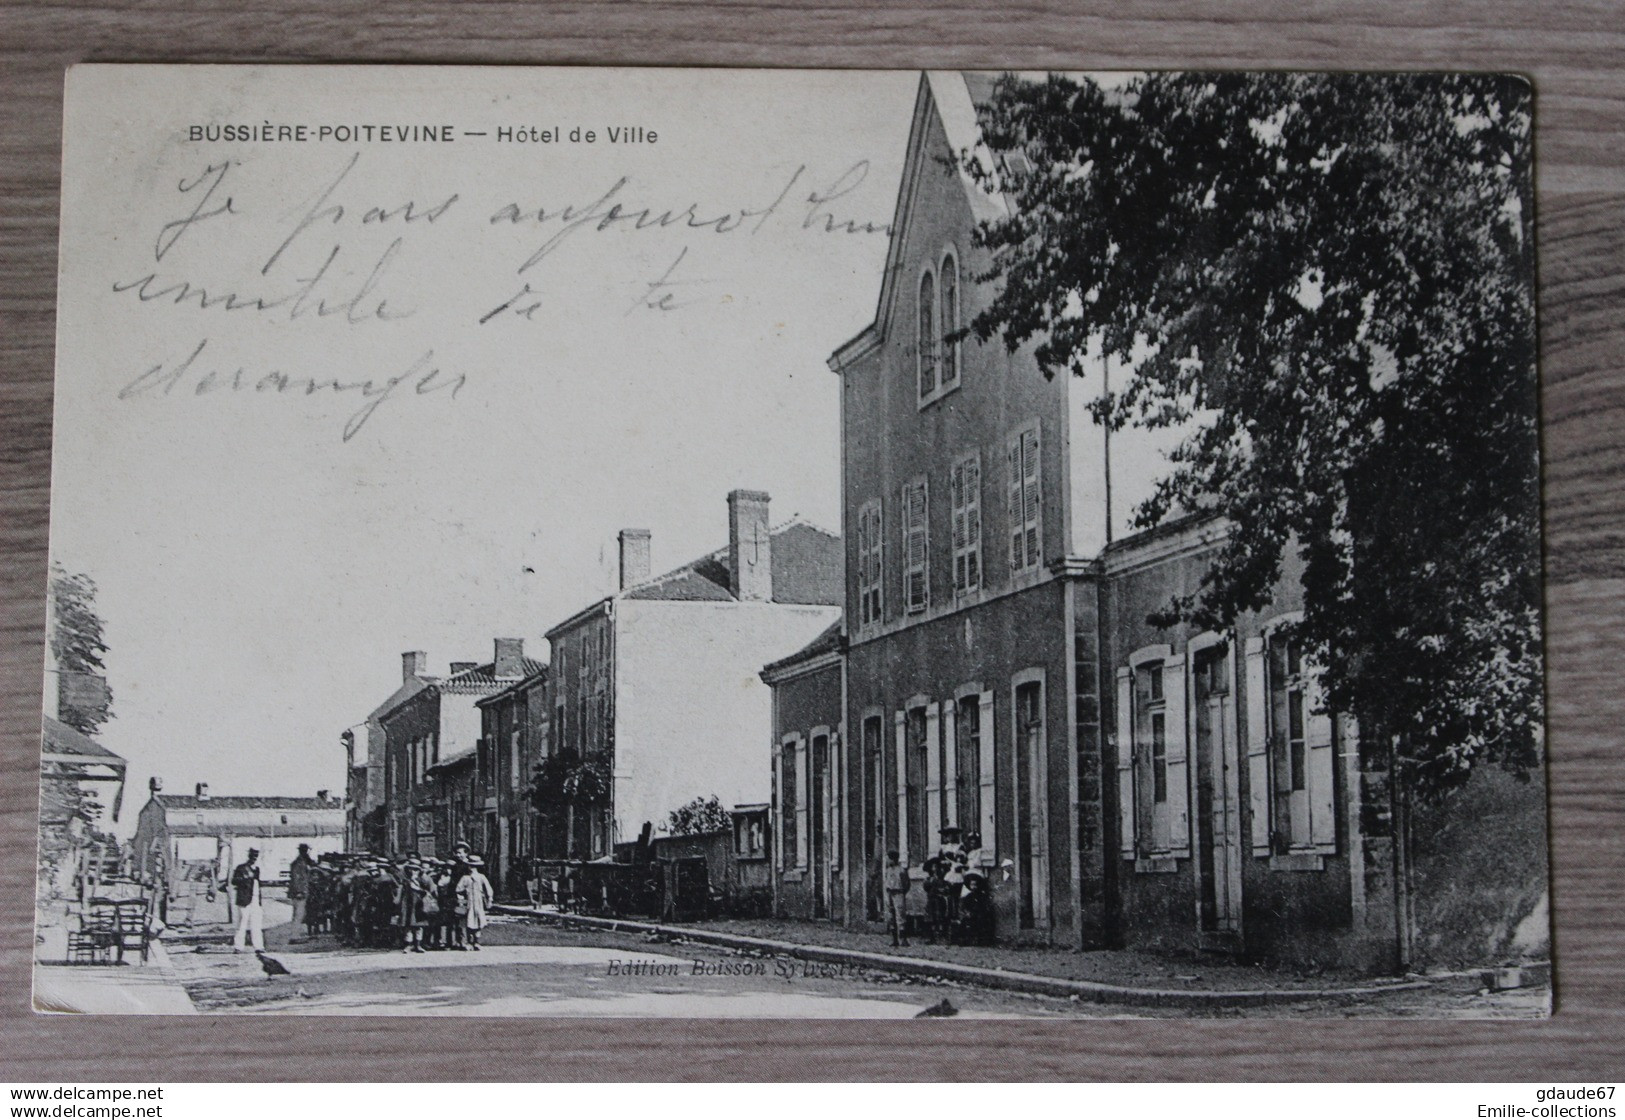 BUSSIÈRE-POITEVINE — Hôtel de Ville
Je pars aujourd'hui
inutile de te
deranger
Edition Boisson Sylvestre
www.delcampe.net
www.delcampe.net
gdaude67
Emilie-collections